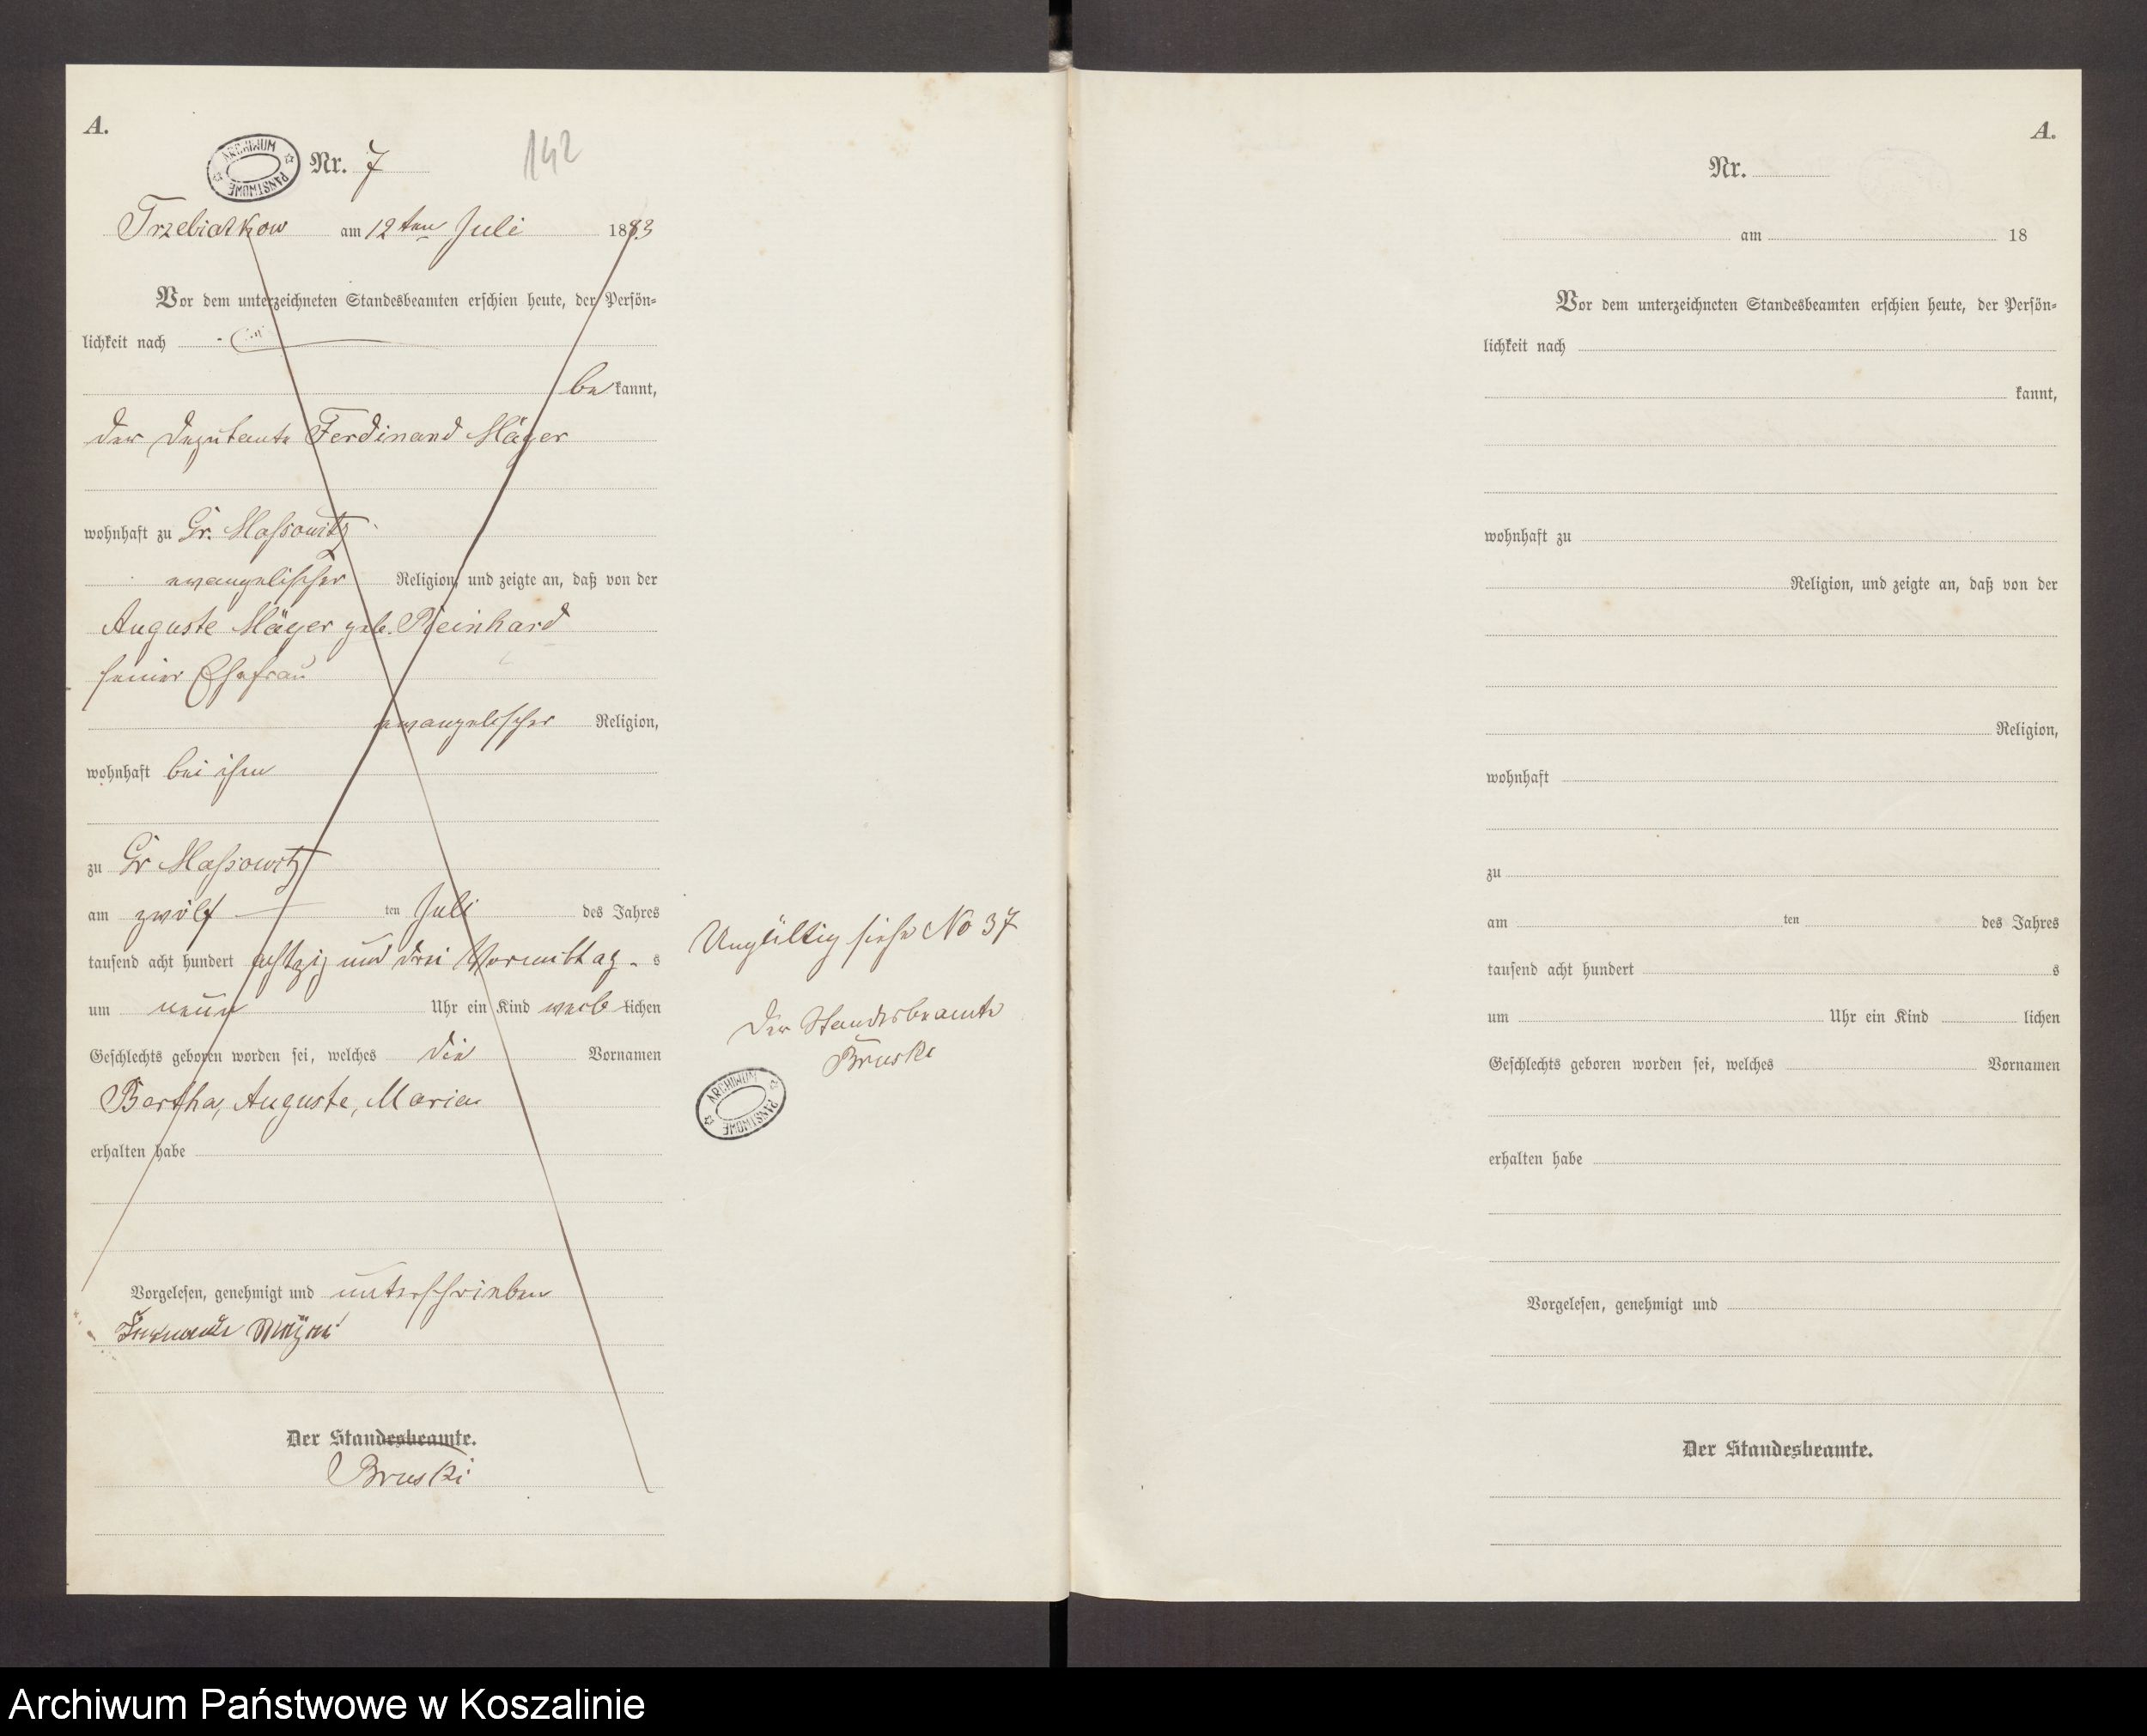 A.
ARCHIWUM PAŃSTWOWE
Nr. 7
142
Trzebiatkow am 12ten Juli 1883
Vor dem unterzeichneten Standesbeamten erschien heute, der Persön-
lichkeit nach
be kannt,
der Deputante Ferdinand Mäyer
wohnhaft zu Gr. Massowitz
evangelischer Religion, und zeigte an, daß von der
Auguste Mäyer geb. Reinhard
seiner Ehefrau
evangelischer Religion,
wohnhaft bei ihm
zu Gr Massowitz
am zwölf ten Juli des Jahres
tausend acht hundert achtzig und drei Vormittag s
um neun Uhr ein Kind weib lichen
Geschlechts geboren worden sei, welches die Vornamen
Bertha, Auguste, Marie
erhalten habe
Vorgelesen, genehmigt und unterschrieben
Der Standesbeamte.
Bruski
Ungültig siehe No 37
Der Standesbeamte
Bruski
ARCHIWUM PAŃSTWOWE
A.
Nr.
am 18
Vor dem unterzeichneten Standesbeamten erschien heute, der Persön-
lichkeit nach
kannt,
wohnhaft zu
Religion, und zeigte an, daß von der
Religion,
wohnhaft
zu
am ten des Jahres
tausend acht hundert s
um Uhr ein Kind lichen
Geschlechts geboren worden sei, welches Vornamen
erhalten habe
Vorgelesen, genehmigt und
Der Standesbeamte.
Archiwum Państwowe w Koszalinie